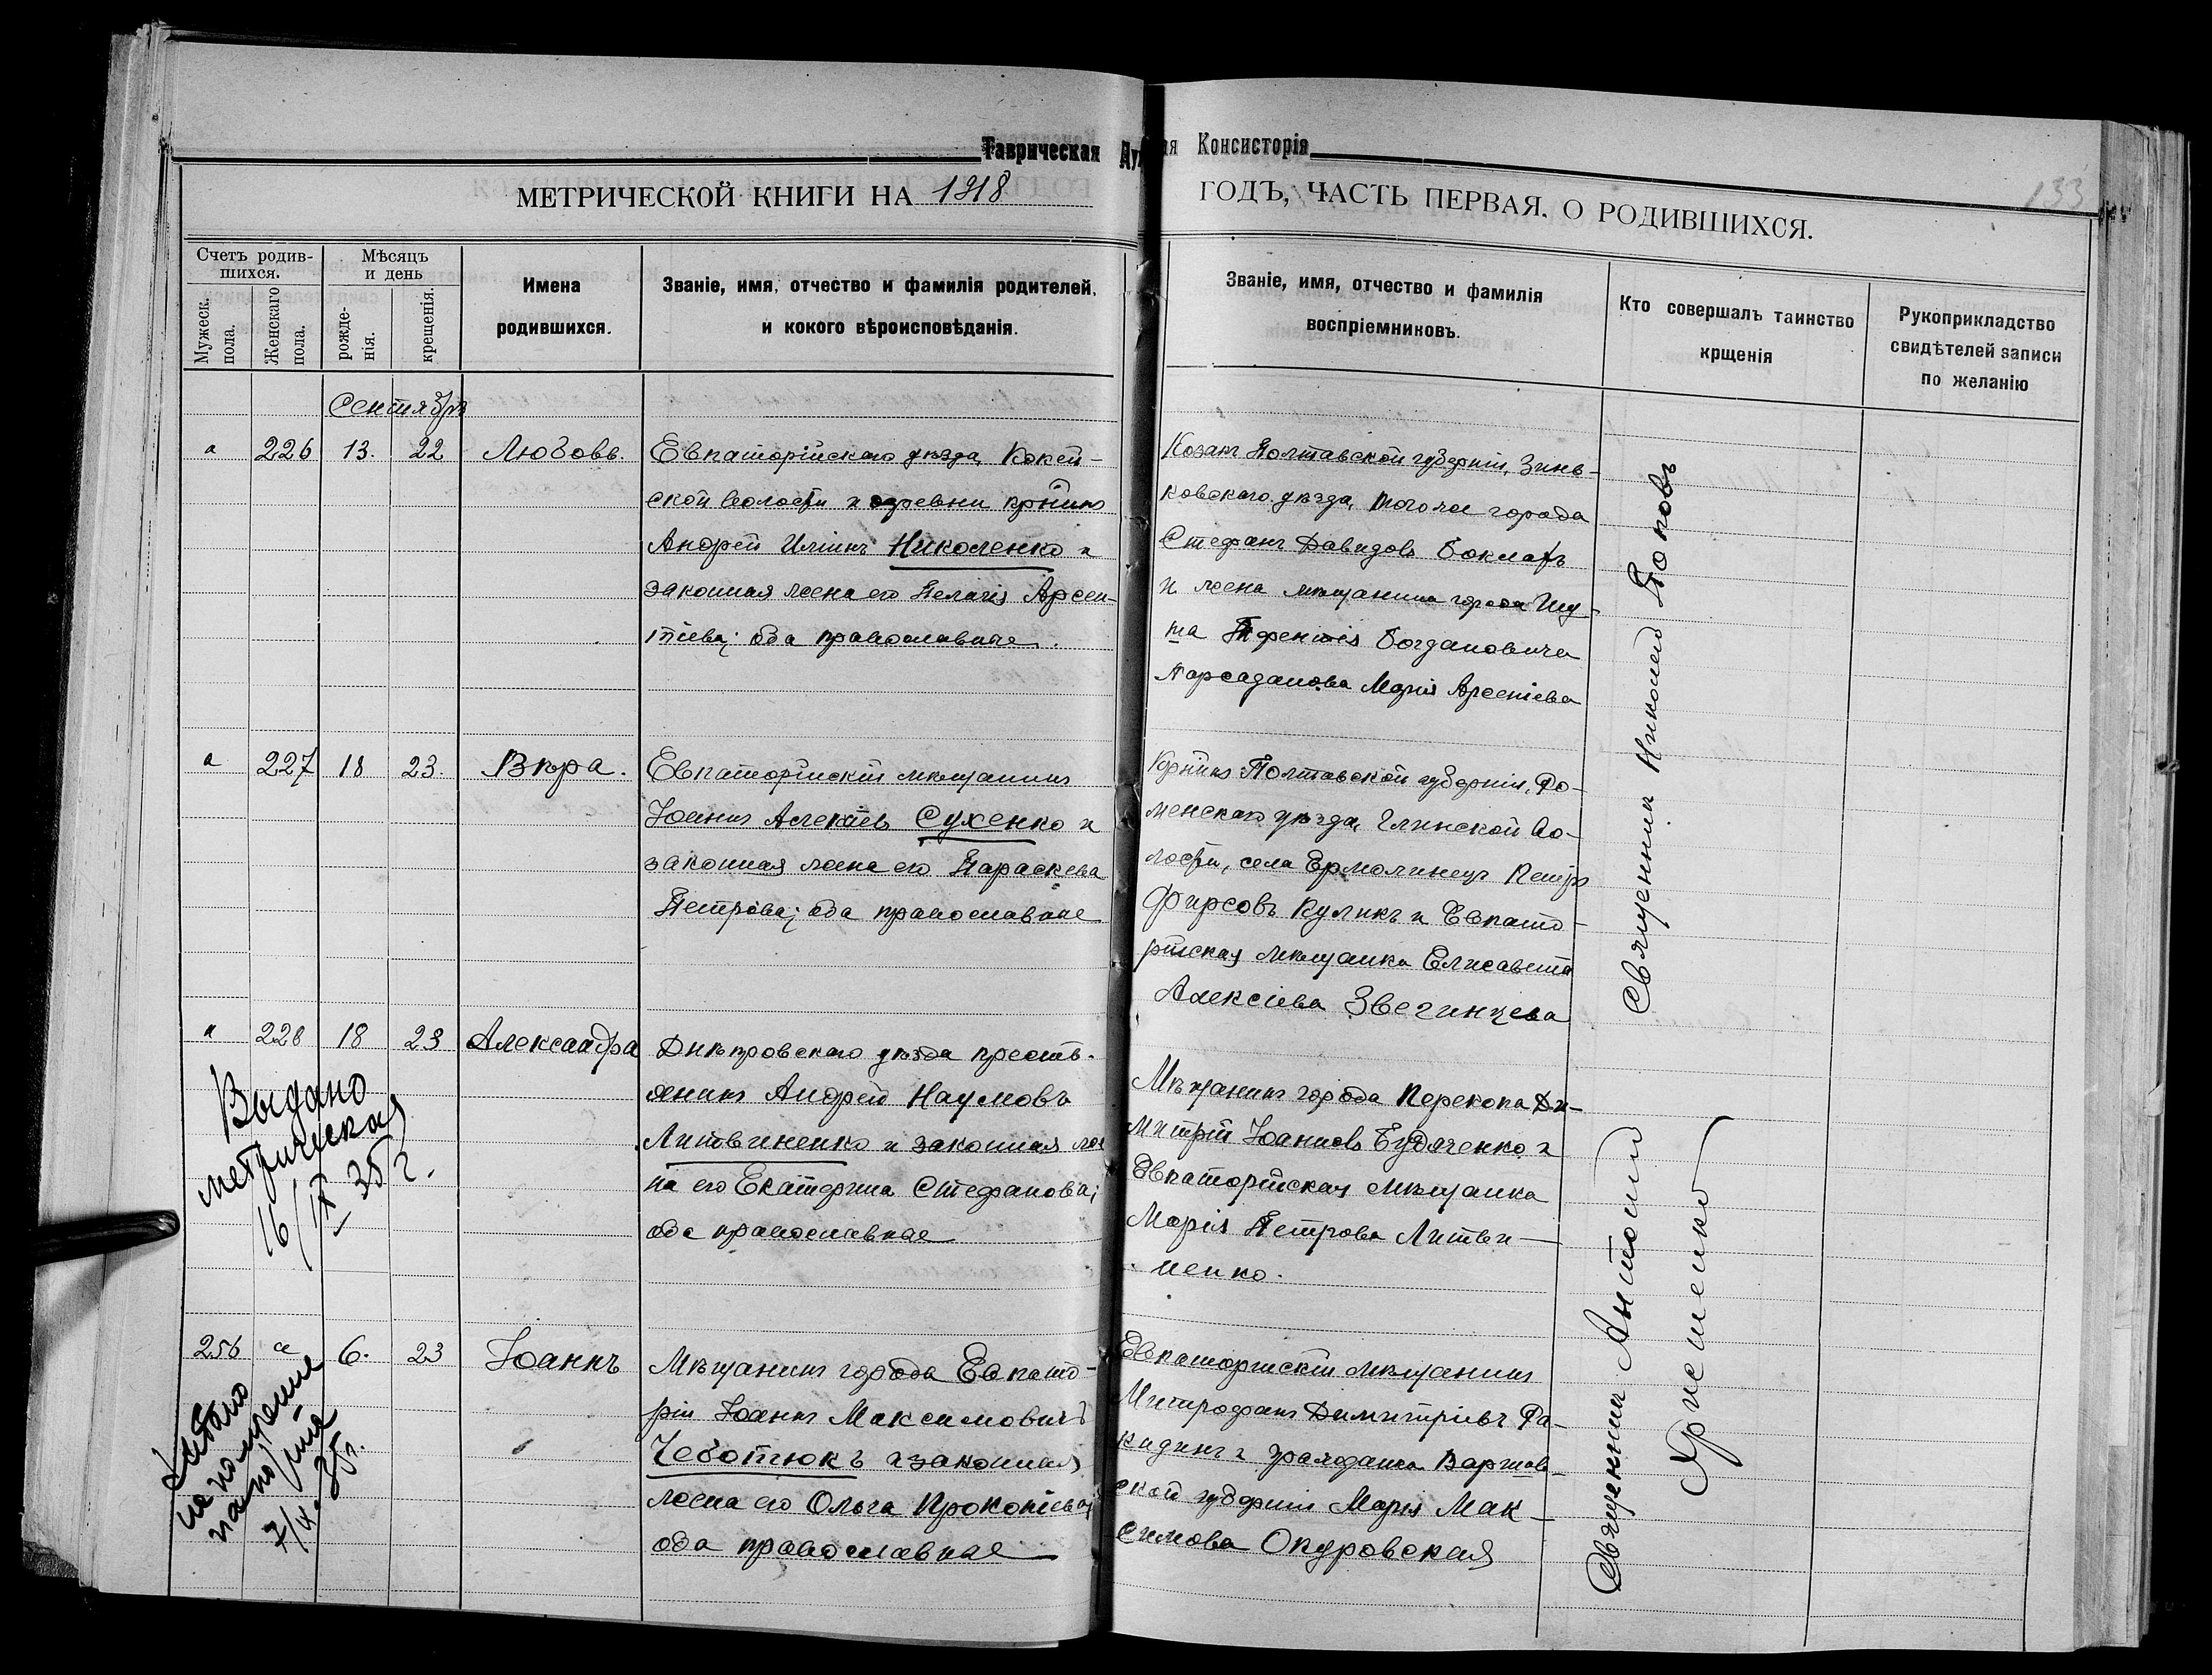 Таврическая Консисторія
133
МЕТРИЧЕСКОЙ КНИГИ НА 1918 ГОДЪ, ЧАСТЬ ПЕРВАЯ. О РОДИВШИХСЯ.
Счетъ родив-
шихся.
Мужеск.
пола.
Женскаго
пола.
Мѣсяцъ
и день
рожде-
нія.
крещенія.
Имена
родившихся.
Званіе, имя, отчество и фамилія родителей,
и кокого вѣроисповѣданія.
Званіе, имя, отчество и фамилія
воспріемниковъ.
Кто совершалъ таинство
крщенія
Рукоприкладство
свидѣтелей записи
по желанію
Сентябрь
226 13. 22 Любовь.
Евпаторійскаго уѣзда, Кокей-
ской волости и деревни крнинъ
Андрей Иліинъ Николенко и
законная жена его Пелагія Арсен-
тіева; оба православные.
Козакъ Полтавской губерніи, Зинь-
ковскаго уѣзда, того же города
Стефанъ Давидовъ Боклагъ
и жена мѣщанина города
Богдановича
Парсаданова Марія Арсеніева
227 18 23. Вѣра.
Евпаторійскій мѣщанинъ
Іоаннъ Алексіевъ Сухенко и
законная жена его Параскева
Петрова; оба православные
Крнинъ Полтавской губерніи, Ро-
менскаго уѣзда, Глинской во-
лости, села Ермолинецъ Петръ
Фирсовъ Куликъ и Евпато-
рійская мѣщанка Елисавета
Алексіева Звегинцева
Священник Николай Поповъ
228 18 23 Александра
Днѣпровскаго уѣзда крестья-
янинъ Андрей Наумовъ
Литвиненко и законная же
на его Екатерина Стефановна;
оба православные
Мѣщанинъ города Перекопа Ди-
митрій Іоанновъ Будяченко и
Евпаторійская мѣщанка
Марія Петрова Литви-
ненко.
Выдано
метрическая
16/IX 35 г.
256 6. 23 Іоаннъ
Мѣщанинъ города Евпато-
ріи Іоаннъ Максимовичъ
Чеботюкъ и законная
жена его Ольга Прокопіева;
оба православные
Евпаторійскій мѣщанинъ
Митрофанъ Димитріевъ Ра-
кидинъ и гражданка Варшав-
ской губерніи Марія Мак-
симова Окуровская
Священник Антоній
Хрисменко